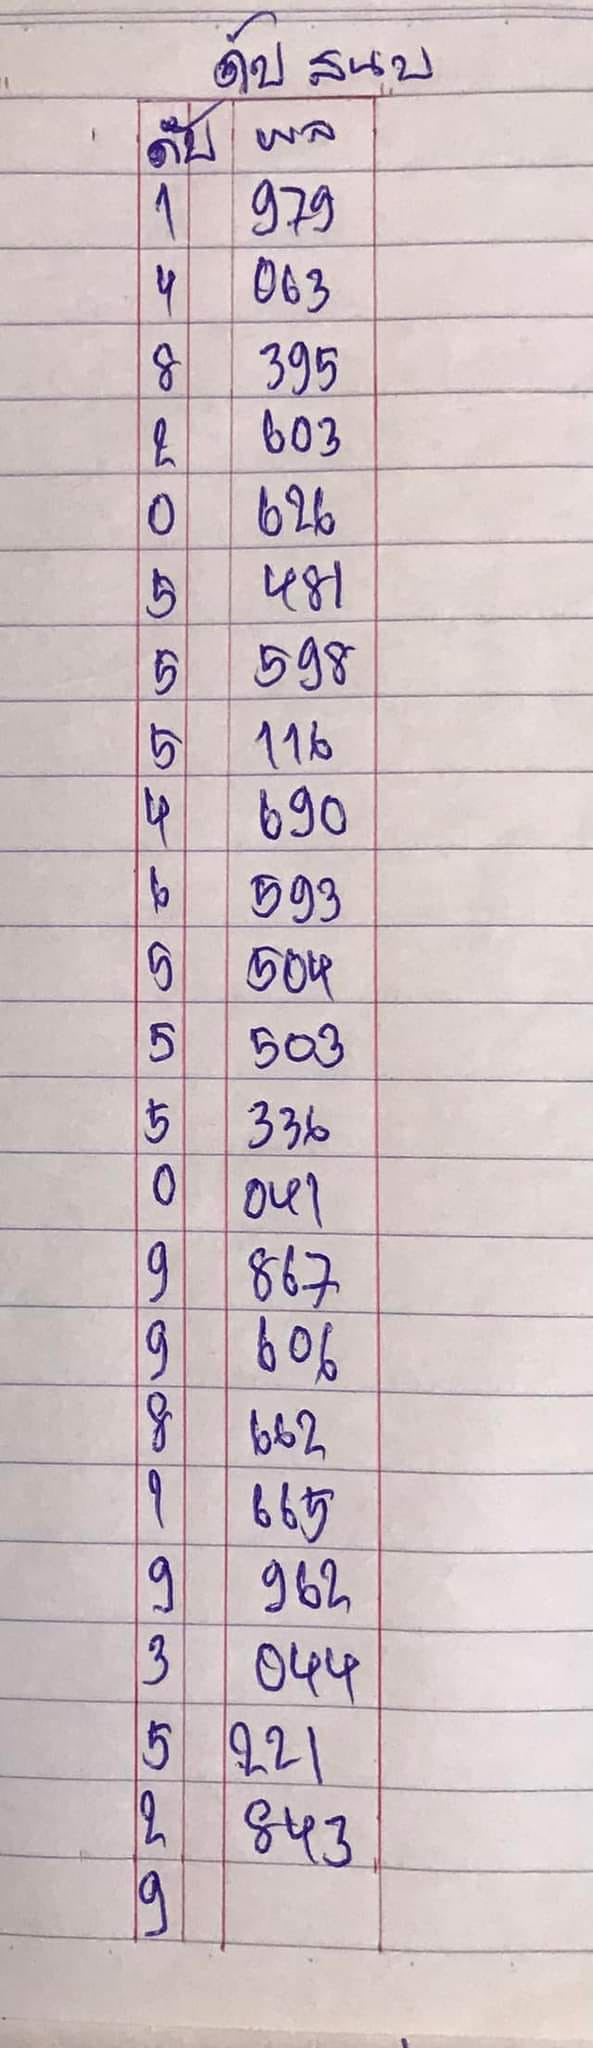 ดับ สนบ
ดับ ผล
1 979
4 063
8 395
2 603
0 626
5 481
5 598
5 116
4 690
6 593
5 504
5 503
5 336
0 041
9 867
9 606
8 662
1 665
9 962
3 044
5 221
2 843
9